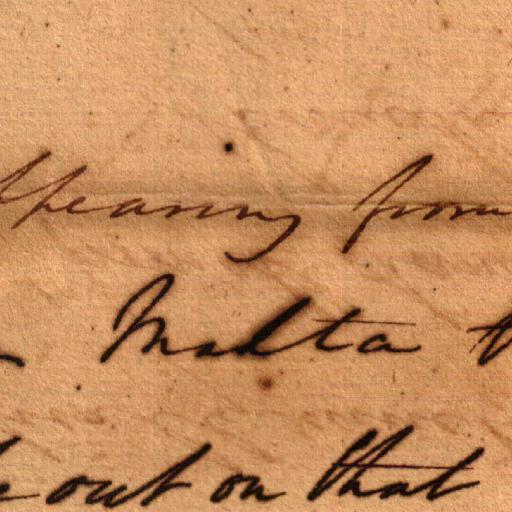 hearing from
Malta
out on that